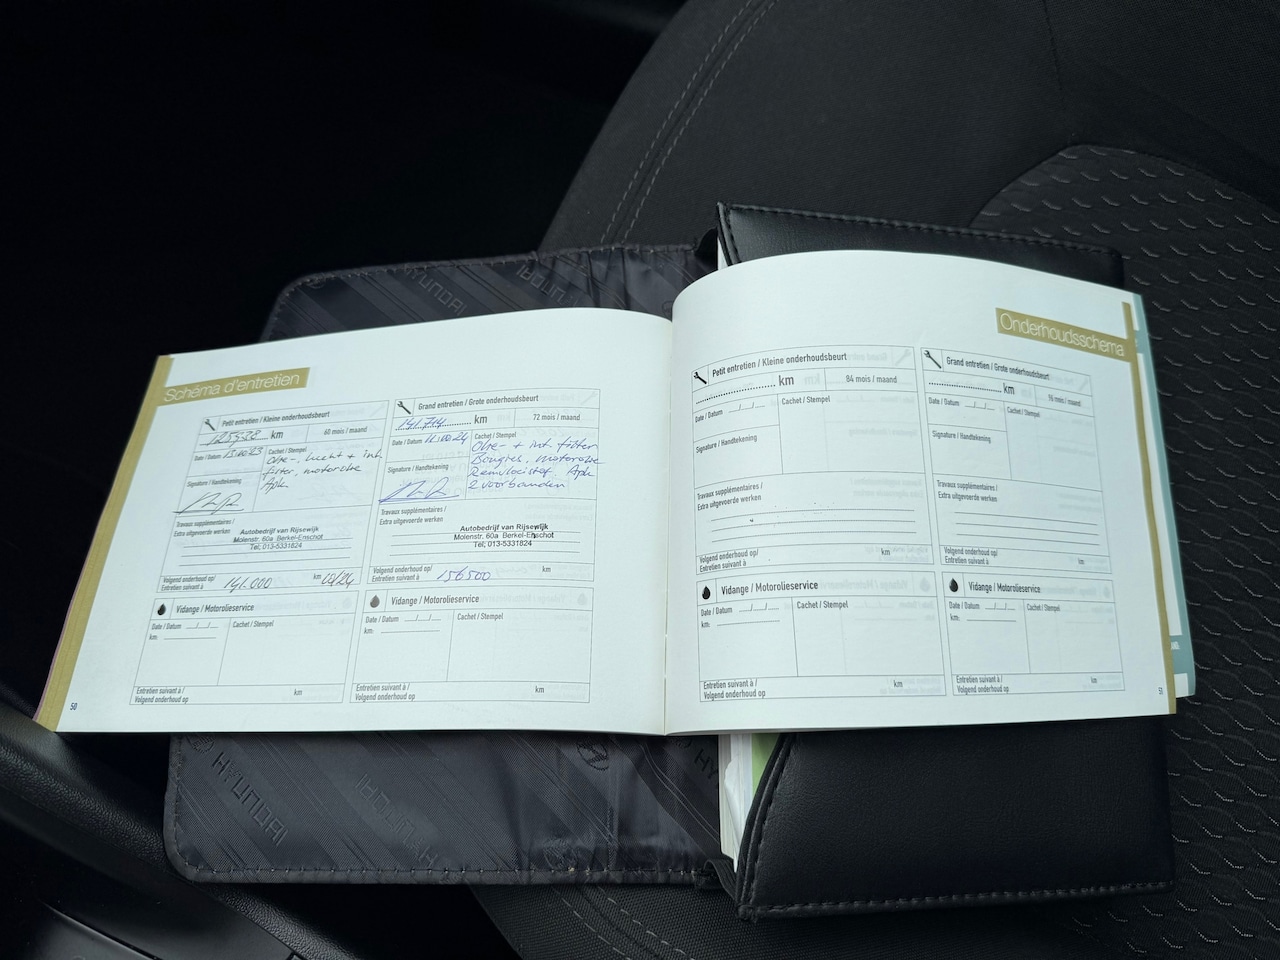 Schéma d'entretien
Petit entretien / Kleine onderhoudsbeurt
km
60 mois / maand
Date / Datum
Cachet / Stempel
Olie-, lucht + int.
filter, motorolie
Apk
Signature / Handtekening
Travaux supplémentaires /
Extra uitgevoerde werken
Autobedrijf van Rijsewijk
Molenstr. 60a Berkel-Enschot
Tel; 013-5331824
Volgend onderhoud op/
Entretien suivant à
141.000
km
10/24
Vidange / Motorolieservice
Date / Datum
km:
Cachet / Stempel
Entretien suivant à /
Volgend onderhoud op
km
50
Grand entretien / Grote onderhoudsbeurt
141.714
km
72 mois / maand
Date / Datum
Cachet / Stempel
Olie- + int. filter
Bougies, motorolie
Remvloeistof. Apk
2 voorbanden
Signature / Handtekening
Travaux supplémentaires /
Extra uitgevoerde werken
Autobedrijf van Rijsewijk
Molenstr. 60a Berkel-Enschot
Tel; 013-5331824
Volgend onderhoud op/
Entretien suivant à
156500
km
Vidange / Motorolieservice
Date / Datum
km:
Cachet / Stempel
Entretien suivant à /
Volgend onderhoud op
km
Onderhoudsschema
Petit entretien / Kleine onderhoudsbeurt
km
84 mois / maand
Date / Datum
Cachet / Stempel
Signature / Handtekening
Travaux supplémentaires /
Extra uitgevoerde werken
Volgend onderhoud op/
Entretien suivant à
km
Vidange / Motorolieservice
Date / Datum
km:
Cachet / Stempel
Entretien suivant à /
Volgend onderhoud op
km
Grand entretien / Grote onderhoudsbeurt
km
96 mois / maand
Date / Datum
Cachet / Stempel
Signature / Handtekening
Travaux supplémentaires /
Extra uitgevoerde werken
Volgend onderhoud op/
Entretien suivant à
km
Vidange / Motorolieservice
Date / Datum
km:
Cachet / Stempel
Entretien suivant à /
Volgend onderhoud op
km
51
HYUNDAI
HYUNDAI